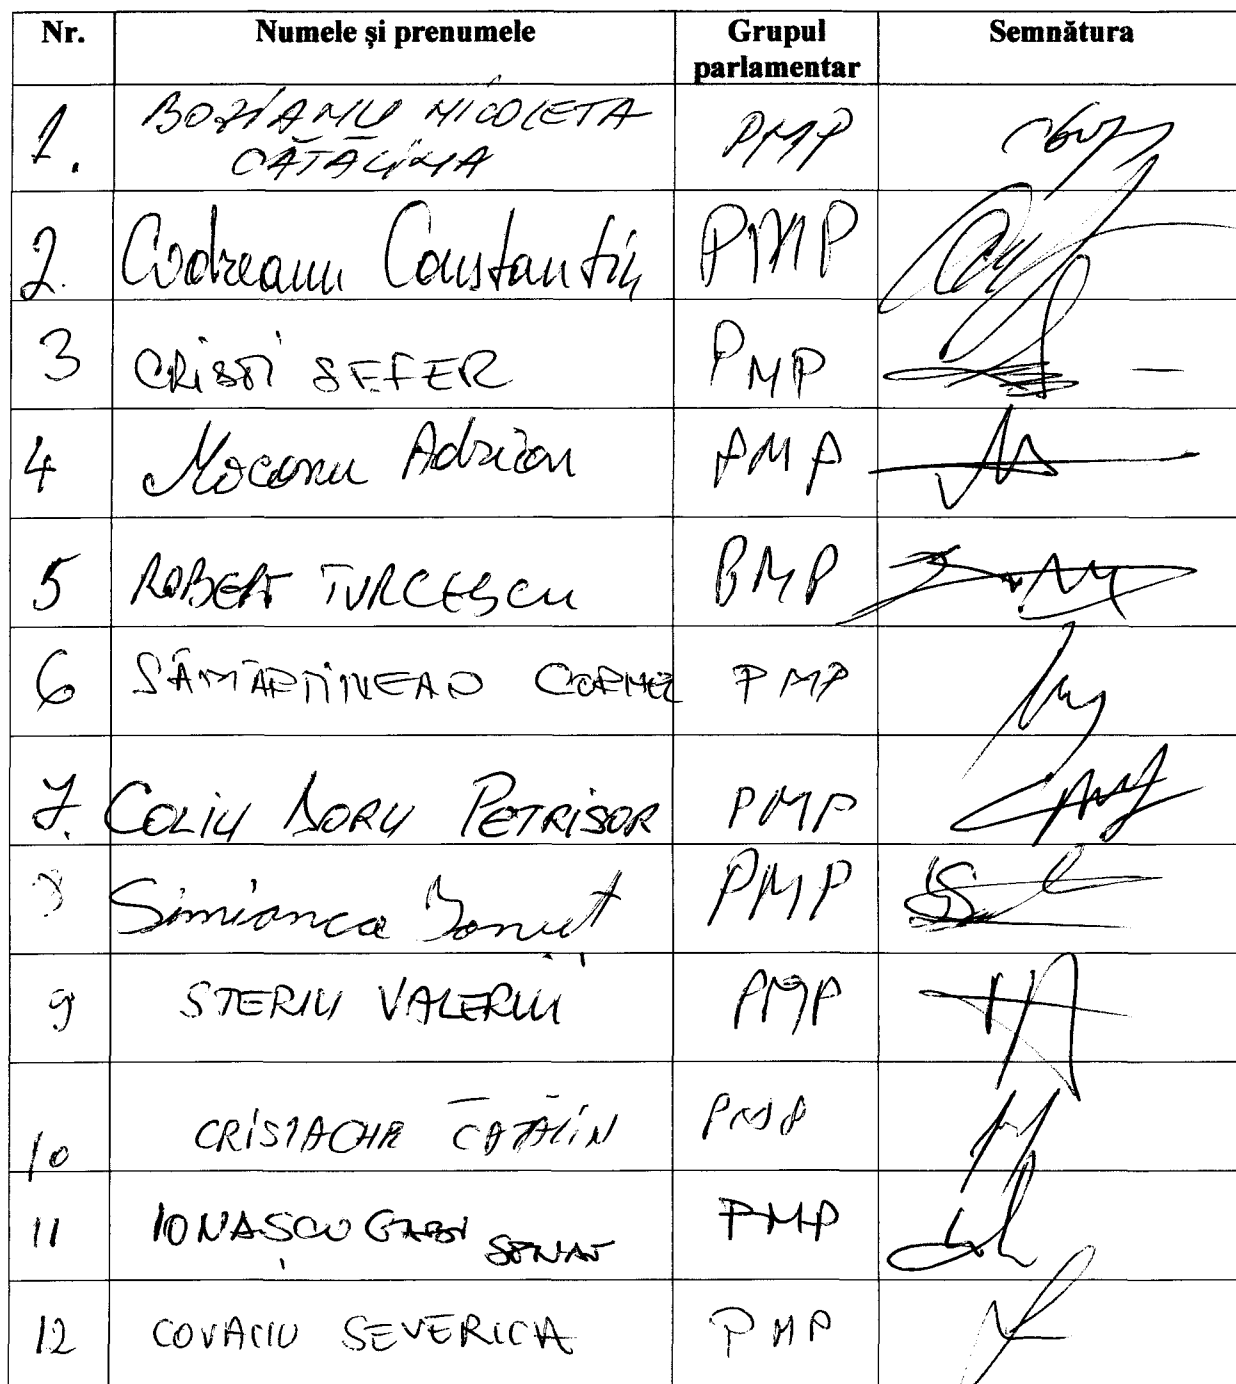 Nr. Numele și prenumele Grupul parlamentar Semnătura
1. BOZIANU NICOLETA CĂTĂLINA PMP
2. Codreanu Constantin PMP
3 CRISTI SEFER PMP
4 Mocanu Adrian PMP
5 ROBERT TURCESCU PMP
6 SĂMĂRTINEAN CORNEL PMP
7. COLIU DORU PETRISOR PMP
8 Simionca Ionuț PMP
9 STERIU VALERIU PMP
10 CRISTACHE CĂTĂLIN PMP
11 IONAȘCU GABI SENAT PMP
12 COVACIU SEVERICA PMP